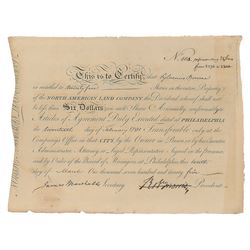 No.
This is to Certify that Sylvanus Bourne
is entitled to twenty five Shares in the entire Property
of the NORTH AMERICAN LAND COMPANY, the Dividend whereof shall not
be less than SIX Dollars on each Share Annually, conformably to
Articles of Agreement Duly Executed dated at PHILADELPHIA the
twentieth day of February 1795. Transferable only at the
Company's Office in that CITY by the Owner in Person or by his Executor
Administrator Attorney or legal Representative. Signed in the presence
and by Order of the Board of Managers at Philadelphia this
day of March One thousand seven hundred and ninety five
James Marshall Secretary President